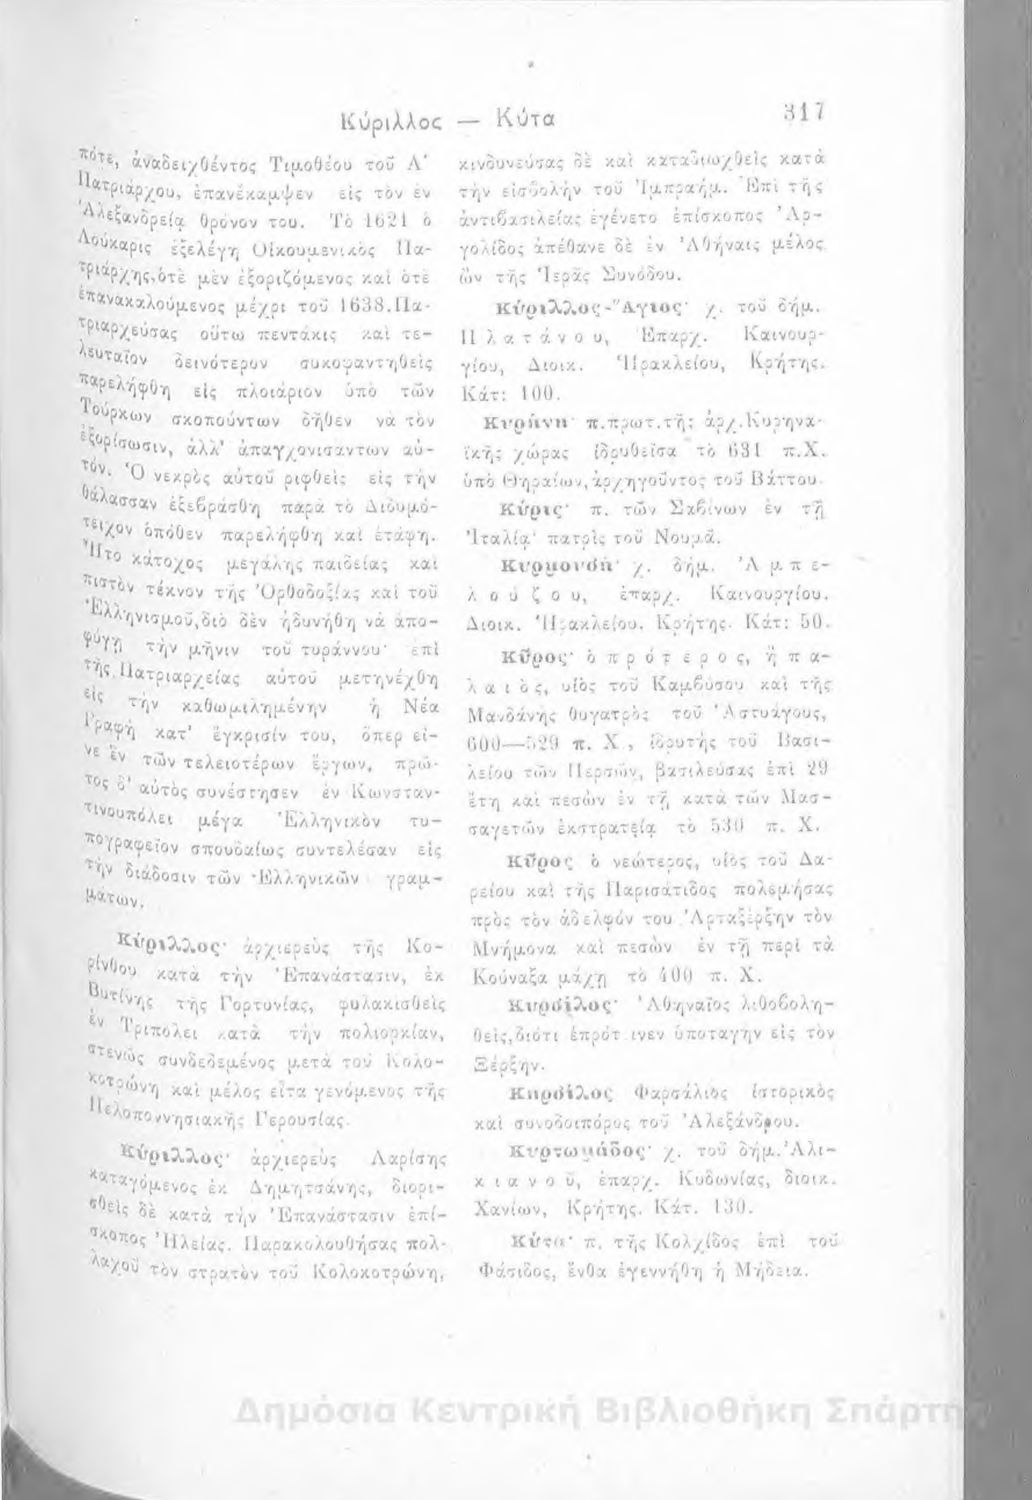 Κύριλλος — Κύτα
317
πότε, ἀναδειχθέντος Τιμοθέου τοῦ Α΄
Πατριάρχου, ἐπανέκαμψεν εἰς τὸν ἐν
Ἀλεξανδρείᾳ θρόνον του. Τὸ 1621 ὁ
Λούκαρις ἐξελέγη Οἰκουμενικὸς Πα-
τριάρχης,ὁτὲ μὲν ἐξοριζόμενος καὶ ὁτὲ
ἐπανακαλούμενος μέχρι τοῦ 1638.Πα-
τριαρχεύσας οὕτω πεντάκις καὶ τε-
λευταῖον δεινότερον συκοφαντηθεὶς
παρελήφθη εἰς πλοιάριον ὑπὸ τῶν
Τούρκων σκοπούντων δῆθεν νὰ τὸν
ἐξορίσωσιν, ἀλλ' ἀπαγχονισάντων αὐ-
τόν. Ὁ νεκρὸς αὐτοῦ ριφθεὶς εἰς τὴν
θάλασσαν ἐξεβράσθη παρὰ τὸ Διδυμό-
τειχον ὁπόθεν παρελήφθη καὶ ἐτάφη.
Ἦτο κάτοχος μεγάλης παιδείας καὶ
πιστὸν τέκνον τῆς Ὀρθοδοξίας καὶ τοῦ
Ἑλληνισμοῦ,διὸ δὲν ἠδυνήθη νὰ ἀπο-
φύγῃ τὴν μῆνιν τοῦ τυράννου· ἐπὶ
τῆς Πατριαρχείας αὐτοῦ μετηνέχθη
εἰς τὴν καθωμιλημένην ἡ Νέα
Γραφὴ κατ' ἔγκρισίν του, ὅπερ εἶ-
νε ἓν τῶν τελειοτέρων ἔργων, πρῶ-
τος δ' αὐτὸς συνέστησεν ἐν Κωνσταν-
τινουπόλει μέγα Ἑλληνικὸν τυ-
πογραφεῖον σπουδαίως συντελέσαν εἰς
τὴν διάδοσιν τῶν Ἑλληνικῶν γραμ-
μάτων.
Κύριλλος· ἀρχιερεὺς τῆς Κο-
ρίνθου κατὰ τὴν Ἐπανάστασιν, ἐκ
Βυτίνης τῆς Γορτυνίας, φυλακισθεὶς
ἐν Τριπόλει κατὰ τὴν πολιορκίαν,
στενῶς συνδεδεμένος μετὰ τοῦ Κολο-
κοτρώνη καὶ μέλος εἶτα γενόμενος τῆς
Πελοποννησιακῆς Γερουσίας.
Κύριλλος· ἀρχιερεὺς Λαρίσης
καταγόμενος ἐκ Δημητσάνης, διορι-
σθεὶς δὲ κατὰ τὴν Ἐπανάστασιν ἐπί-
σκοπος Ἠλείας. Παρακολουθήσας πολ-
λαχοῦ τὸν στρατὸν τοῦ Κολοκοτρώνη,
κινδυνεύσας δὲ καὶ καταδιωχθεὶς κατὰ
τὴν εἰσβολὴν τοῦ Ἰμπραήμ. Ἐπὶ τῆς
ἀντιβασιλείας ἐγένετο ἐπίσκοπος Ἀρ-
γολίδος ἀπέθανε δὲ ἐν Ἀθήναις μέλος
ὢν τῆς Ἱερᾶς Συνόδου.
Κύριλλος-Ἅγιος· χ. τοῦ δήμ.
Πλατάνου, Ἐπαρχ. Καινουρ-
γίου, Διοικ. Ἡρακλείου, Κρήτης.
Κάτ: 100.
Κυρήνη· π.πρωτ.τῆς ἀρχ.Κυρηνα-
ϊκῆς χώρας ἱδρυθεῖσα τὸ 631 π.Χ.
ὑπὸ Θηραίων,ἀρχηγοῦντος τοῦ Βάττου.
Κύρις· π. τῶν Σαβίνων ἐν τῇ
Ἰταλίᾳ· πατρὶς τοῦ Νουμᾶ.
Κυρμουσῆ· χ. δήμ. Ἀμπε-
λούζου, ἐπαρχ. Καινουργίου.
Διοικ. Ἡρακλείου. Κρήτης. Κάτ: 50.
Κῦρος· ὁ πρότερος, ἢ πα-
λαιὸς, υἱὸς τοῦ Καμβύσου καὶ τῆς
Μανδάνης θυγατρὸς τοῦ Ἀστυάγους,
600—529 π. Χ., ἱδρυτὴς τοῦ Βασι-
λείου τῶν Περσῶν, βασιλεύσας ἐπὶ 29
ἔτη καὶ πεσὼν ἐν τῇ κατὰ τῶν Μασ-
σαγετῶν ἐκστρατείᾳ τὸ 530 π. Χ.
Κῦρος ὁ νεώτερος, υἱὸς τοῦ Δα-
ρείου καὶ τῆς Παρισάτιδος πολεμήσας
πρὸς τὸν ἀδελφόν του Ἀρταξέρξην τὸν
Μνήμονα καὶ πεσὼν ἐν τῇ περὶ τὰ
Κούναξα μάχῃ τὸ 400 π. Χ.
Κυρσίλος· Ἀθηναῖος λιθοβολη-
θεὶς,διότι ἐπρότεινεν ὑποταγὴν εἰς τὸν
Ξέρξην.
Κυρσίλος Φαρσάλιος ἱστορικὸς
καὶ συνοδοιπόρος τοῦ Ἀλεξάνδρου.
Κυρτωμάδος· χ. τοῦ δήμ.Ἀλι-
κιανοῦ, ἐπαρχ. Κυδωνίας, διοικ.
Χανίων, Κρήτης. Κάτ. 130.
Κύτα· π. τῆς Κολχίδος ἐπὶ τοῦ
Φάσιδος, ἔνθα ἐγεννήθη ἡ Μήδεια.
Δημόσια Κεντρική Βιβλιοθήκη Σπάρτης